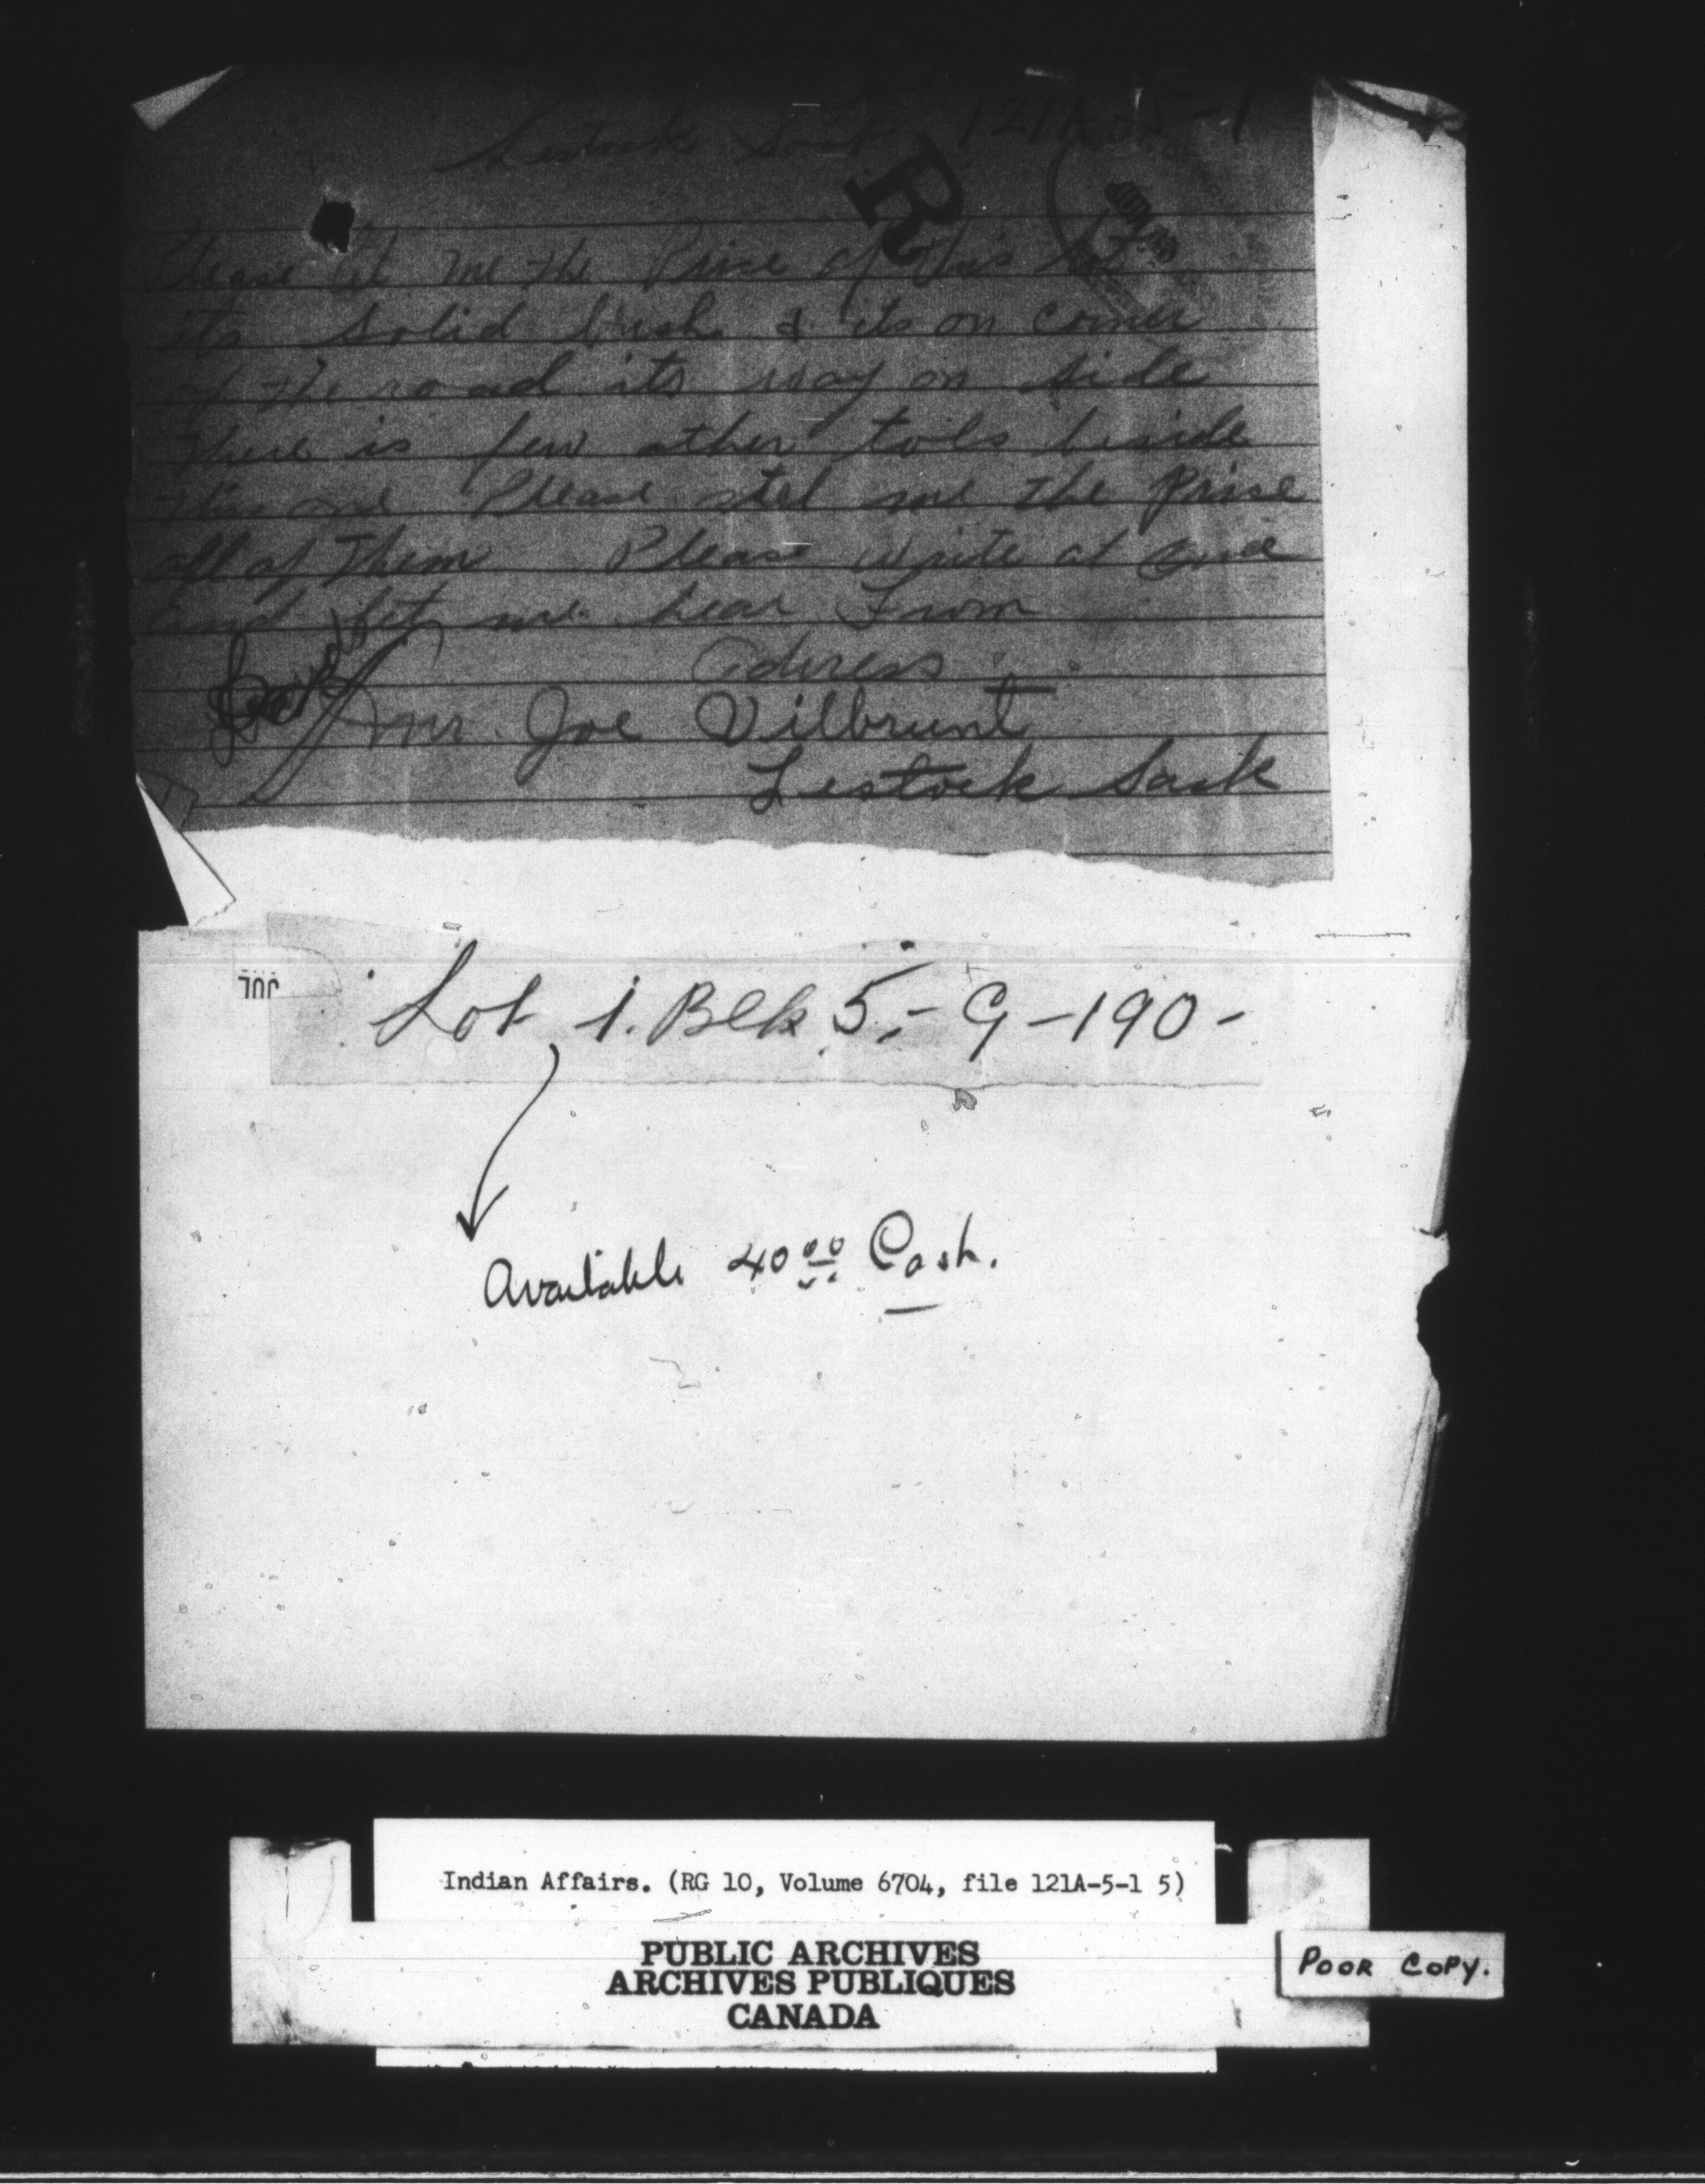 Lestock Sask 121A-5-1
R
Please let me the Prise of this lot
its solid bush & its on corner
of the road its way on side
There is few other lots beside
this one Please stel me the Prise
all of them Please write at once
and let me hear From
adress
Mr. Joe Vilbrunt
Lestock Sask
JUL
Lot 1. Blk 5,- G-190-
Available 40 00 Cash.
Indian Affairs. (RG 10, Volume 6704, file 121A-5-1 5)
PUBLIC ARCHIVES
ARCHIVES PUBLIQUES
CANADA
POOR COPY.